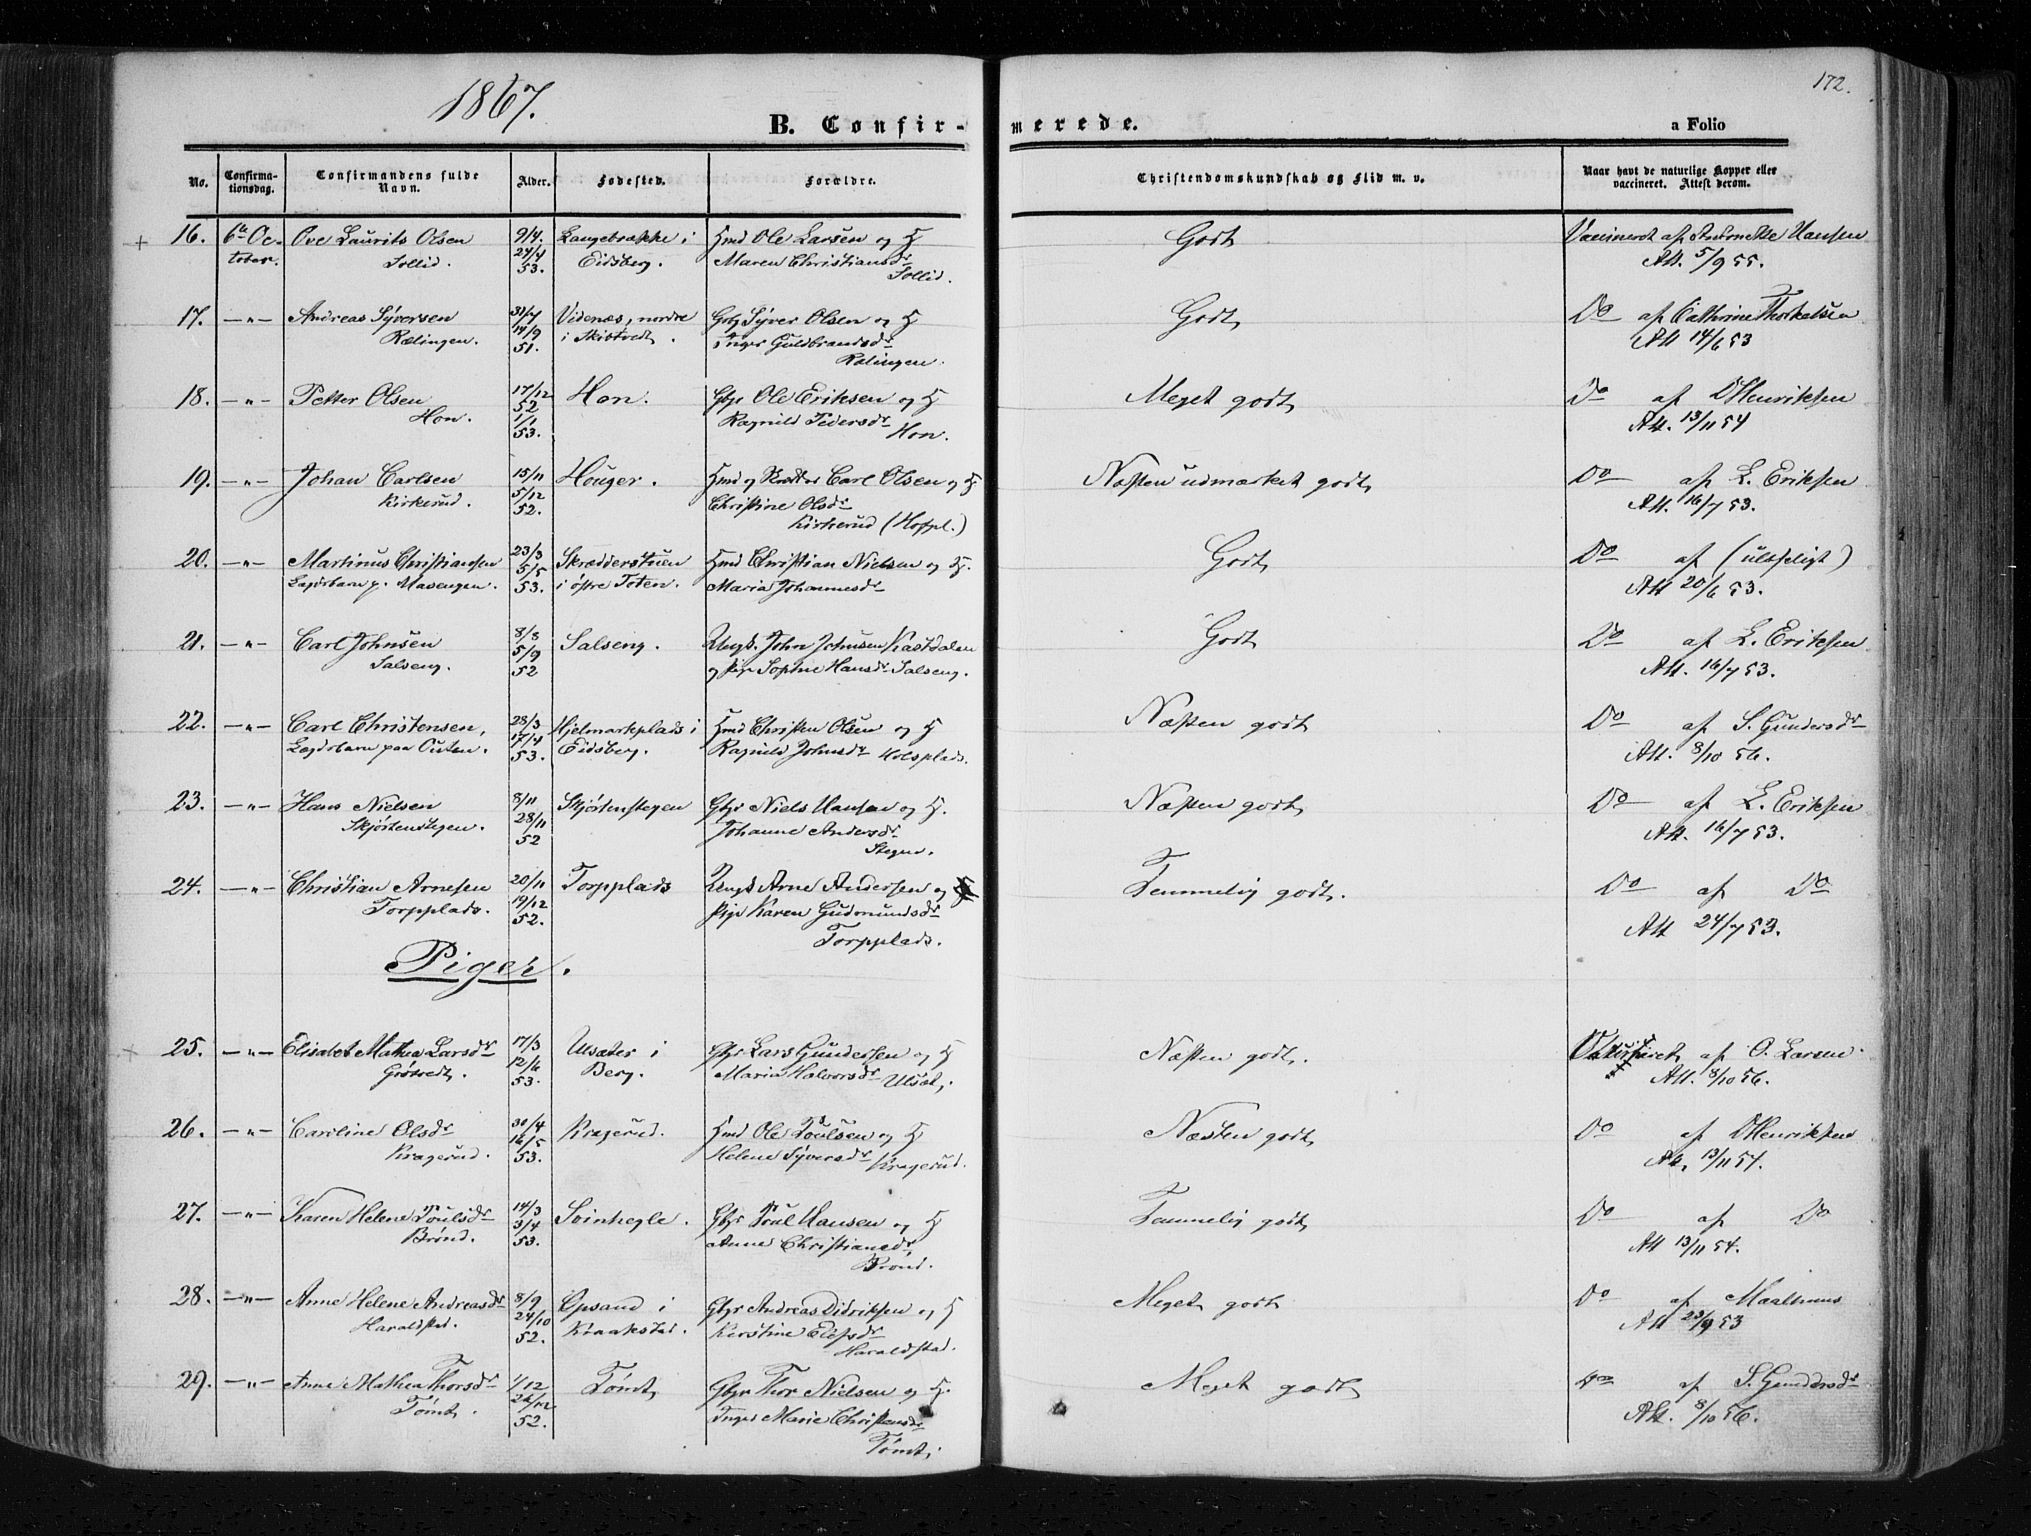 1867.
172.
B. Confirmerede.
a Folio
No.
Confirmationsdag.
Confirmandens fulde Navn.
Alder.
Fødested.
Forældre.
Christendomskundskab og Flid m. v.
Naar havt de naturlige Kopper eller vaccineret. Attest derom.
16. 6te Oc- Ove Laurits Olsen 9/4. Langebrække i Hmd Ole Larsen og H Godt Vaccineret af Antonette Hansen
tober. Sollid. 24/4 Eidsberg. Maren Christiansdr Att. 5/9 55.
53. Sollid.
17. —"— Andreas Syversen 31/7 Videnæs, nordre Gbr Syver Olsen og H Godt Do af Cathrine Thorkelsen
Rælingen. 14/9 i Skibtvedt. Inger Guldbrandsdr Att 14/6 53
51. Rælingen.
18. —"— Petter Olsen 17/12 Hon. Gbr Ole Eriksen og H Meget godt Do af O Henriksen
Hon. 52 Ragnild Pedersdr Att. 13/11 54
1/1 Hon.
53.
19. —"— Johan Carlsen 15/11 Houger. Hmd og Skrædder Carl Olsen og H Næsten udmærket godt Do af L. Eriksen
Kirkerud. 5/12 Christine Olsdr Att. 16/7 53.
52. Kirkerud (Hofpl.)
20. —"— Martinus Christiansen 23/3 Skrædderstuen Hmd Christian Nielsen og H. Godt Do af (ulæseligt)
Lægdsbarn p. Masengen. 5/5 i østre Toten. Maria Johannesdr Att 20/6 53.
53.
21. —"— Carl Johnsen 8/8 Salseng. Ungk. John Johnsen Kastdalen Godt Do af L. Eriksen
Salseng. 5/9 og pige Sophie Hansdr Salseng. Att. 16/7 53.
52
22. —"— Carl Christensen, 28/3 Hjelmarkplads i Hmd Christen Olsen og H Næsten godt Do af S. Gundersdr
Lægdsbarn paa Outen. 17/4 Eidsberg. Ragnild Johnsdr Holsplads. Att. 8/10 56.
53.
23. —"— Hans Nielsen 8/11 Skjørtenstegen Gbr Niels Hansen og H. Næsten godt Do af L. Eriksen
Skjørtenstegen. 28/11 Johanne Andersdr Att. 16/7 53.
52 Stegen.
24. —"— Christian Arnesen 20/11 Torpplads Ungk Arne Andersen og Temmelig godt. Do af Do
Torpplads. 19/12 pige Karen Gudmundsdr Att 24/7 53.
52. Torpplads.
Piger.
25. —"— Elisabet Mathea Larsdr 17/3 Ulsæter i Gbr Lars Gundersen og H Næsten godt. af O. Larsen.
Grøtvedt. 12/6 Berg. Maria Halvorsdr Ulsæt. Att. 8/10 56.
53.
26. —"— Caroline Olsdr 30/4 Kragerud. Hmd Ole Poulsen og H Næsten godt Do af O Henriksen
Kragerud. 16/5 Helene Syversdr Kragerud. Att. 13/11 54.
53.
27. —"— Karen Helene Poulsdr 14/3 Svinhegle. Gbr Poul Hansen og H Temmelig godt Do af Do
Brønd. 3/4 Anne Christiansdr Att 13/11 54.
53. Brønd.
28. —"— Anne Helene Andreasdr 8/9 Opsand i Gbr Andreas Didriksen og H Meget godt Do af Maalhuus
Haraldstad. 24/10 Kraakstad. Kirstine Elefsdr Att 23/9 53
52. Haraldstad.
29. —"— Anne Mathea Thorsdr 1/12 Tømt Gbr Thor Nielsen og H. Meget godt Do af S. Gundersdr
Tømt. 26/12 Inger Marie Christensdr Att. 8/10 56.
52. Tømt.